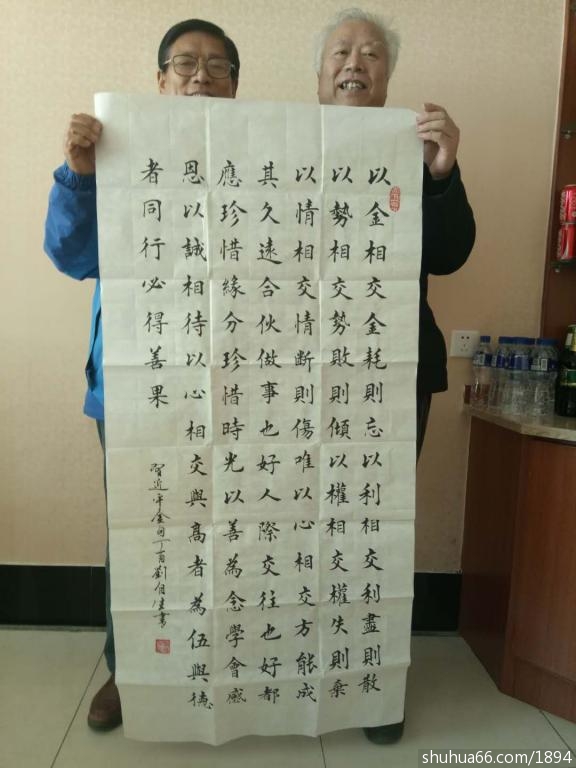 以金相交金耗則忘以利相交利盡則散
以勢相交勢敗則傾以權相交權失則棄
以情相交情斷則傷唯以心相交方能成
其久遠合伙做事也好人際交往也好都
應珍惜緣分珍惜時光以善為念學會感
恩以誠相待以心相交與高者為伍與德
者同行必得善果
習近平金句丁酉劉書
shuhua66.com/1894